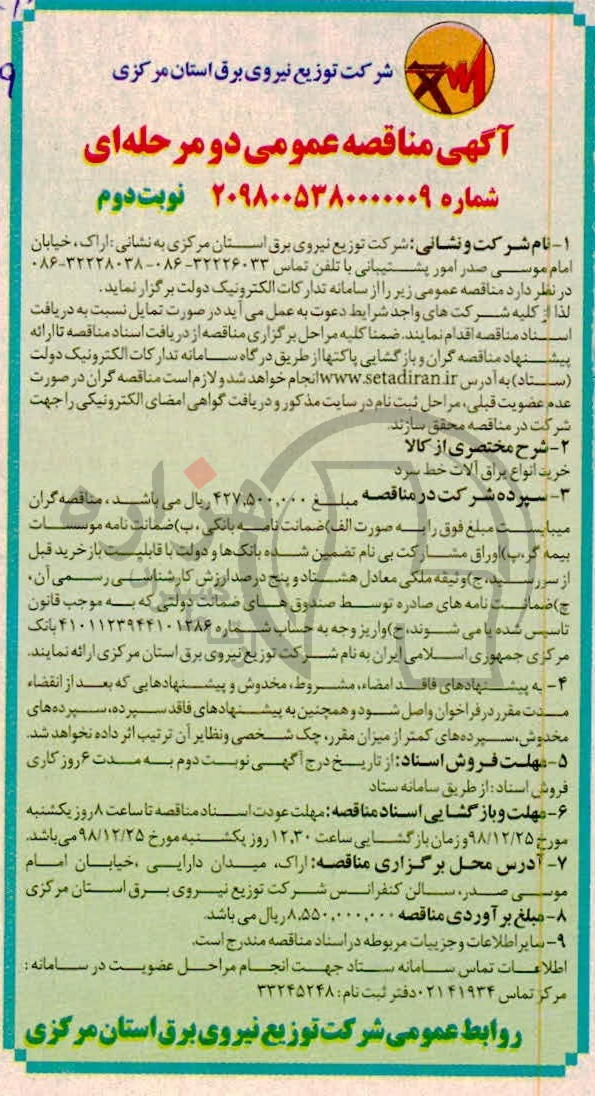 شرکت توزیع نیروی برق استان مرکزی
آگهی مناقصه عمومی دو مرحله‌ای
شماره ۲۰۹۸۰۰۵۳۸۰۰۰۰۰۰۹ نوبت دوم
۱- نام شرکت و نشانی: شرکت توزیع نیروی برق استان مرکزی به نشانی: اراک، خیابان
امام موسی صدر امور پشتیبانی با تلفن تماس ۳۲۲۲۶۰۳۳-۰۸۶ - ۳۲۲۲۸۰۳۸-۰۸۶
در نظر دارد مناقصه عمومی زیر را از سامانه تدارکات الکترونیک دولت برگزار نماید.
لذا از کلیه شرکت های واجد شرایط دعوت به عمل می آید در صورت تمایل نسبت به دریافت
اسناد مناقصه اقدام نمایند. ضمنا کلیه مراحل برگزاری مناقصه از دریافت اسناد مناقصه تا ارائه
پیشنهاد مناقصه گران و بازگشایی پاکتها از طریق درگاه سامانه تدارکات الکترونیک دولت
(ستاد) به آدرس www.setadiran.ir انجام خواهد شد و لازم است مناقصه گران در صورت
عدم عضویت قبلی، مراحل ثبت نام در سایت مذکور و دریافت گواهی امضای الکترونیکی را جهت
شرکت در مناقصه محقق سازند.
۲- شرح مختصری از کالا
خرید انواع یراق آلات خط سرد
۳- سپرده شرکت در مناقصه مبلغ ۴۲۷,۵۰۰,۰۰۰ ریال می باشد، مناقصه گران
میبایست مبلغ فوق را به صورت الف) ضمانت نامه بانکی، ب) ضمانت نامه موسسات
بیمه گر، پ) اوراق مشارکت بی نام تضمین شده بانک‌ها و دولت با قابلیت بازخرید قبل
از سررسید، ج) وثیقه ملکی معادل هشتاد و پنج درصد ارزش کارشناسی رسمی آن،
چ) ضمانت نامه های صادره توسط صندوق های ضمانت دولتی که به موجب قانون
تاسیس شده یا می شوند، ح) واریز وجه به حساب شماره ۴۱۰۱۱۲۳۹۴۴۱۰۱۲۸۶ بانک
مرکزی جمهوری اسلامی ایران به نام شرکت توزیع نیروی برق استان مرکزی ارائه نمایند.
۴- به پیشنهادهای فاقد امضاء، مشروط، مخدوش و پیشنهادهایی که بعد از انقضاء
مدت مقرر در فراخوان واصل شود و همچنین به پیشنهادهای فاقد سپرده، سپرده‌های
مخدوش، سپرده‌های کمتر از میزان مقرر، چک شخصی و نظایر آن ترتیب اثر داده نخواهد شد.
۵- مهلت فروش اسناد: از تاریخ درج آگهی نوبت دوم به مدت ۶ روز کاری
فروش اسناد: از طریق سامانه ستاد
۶- مهلت و بازگشایی اسناد مناقصه: مهلت عودت اسناد مناقصه تا ساعت ۸ روز یکشنبه
مورخ ۹۸/۱۲/۲۵ و زمان بازگشایی ساعت ۱۲,۳۰ روز یکشنبه مورخ ۹۸/۱۲/۲۵ می باشد.
۷- آدرس محل برگزاری مناقصه: اراک، میدان دارایی، خیابان امام
موسی صدر، سالن کنفرانس شرکت توزیع نیروی برق استان مرکزی
۸- مبلغ برآوردی مناقصه ۸,۵۵۰,۰۰۰,۰۰۰ ریال می باشد.
۹- سایر اطلاعات و جزییات مربوطه در اسناد مناقصه مندرج است.
اطلاعات تماس سامانه ستاد جهت انجام مراحل عضویت در سامانه:
مرکز تماس ۰۲۱۴۱۹۳۴ دفتر ثبت نام: ۳۳۲۴۵۲۴۸
روابط عمومی شرکت توزیع نیروی برق استان مرکزی